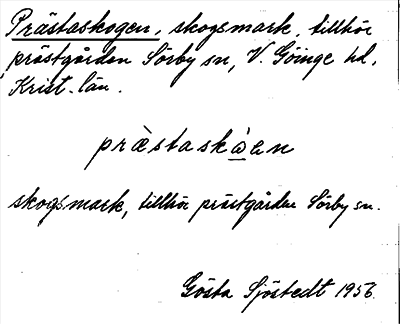 Prästaskogen, skogsmark, tillhör
prästgården Sörby sn, V. Göinge hd,
Krist. län.
præ̀staskàen
skogsmark, tillhör prästgården Sörby sn.
Gösta Sjöstedt 1956.